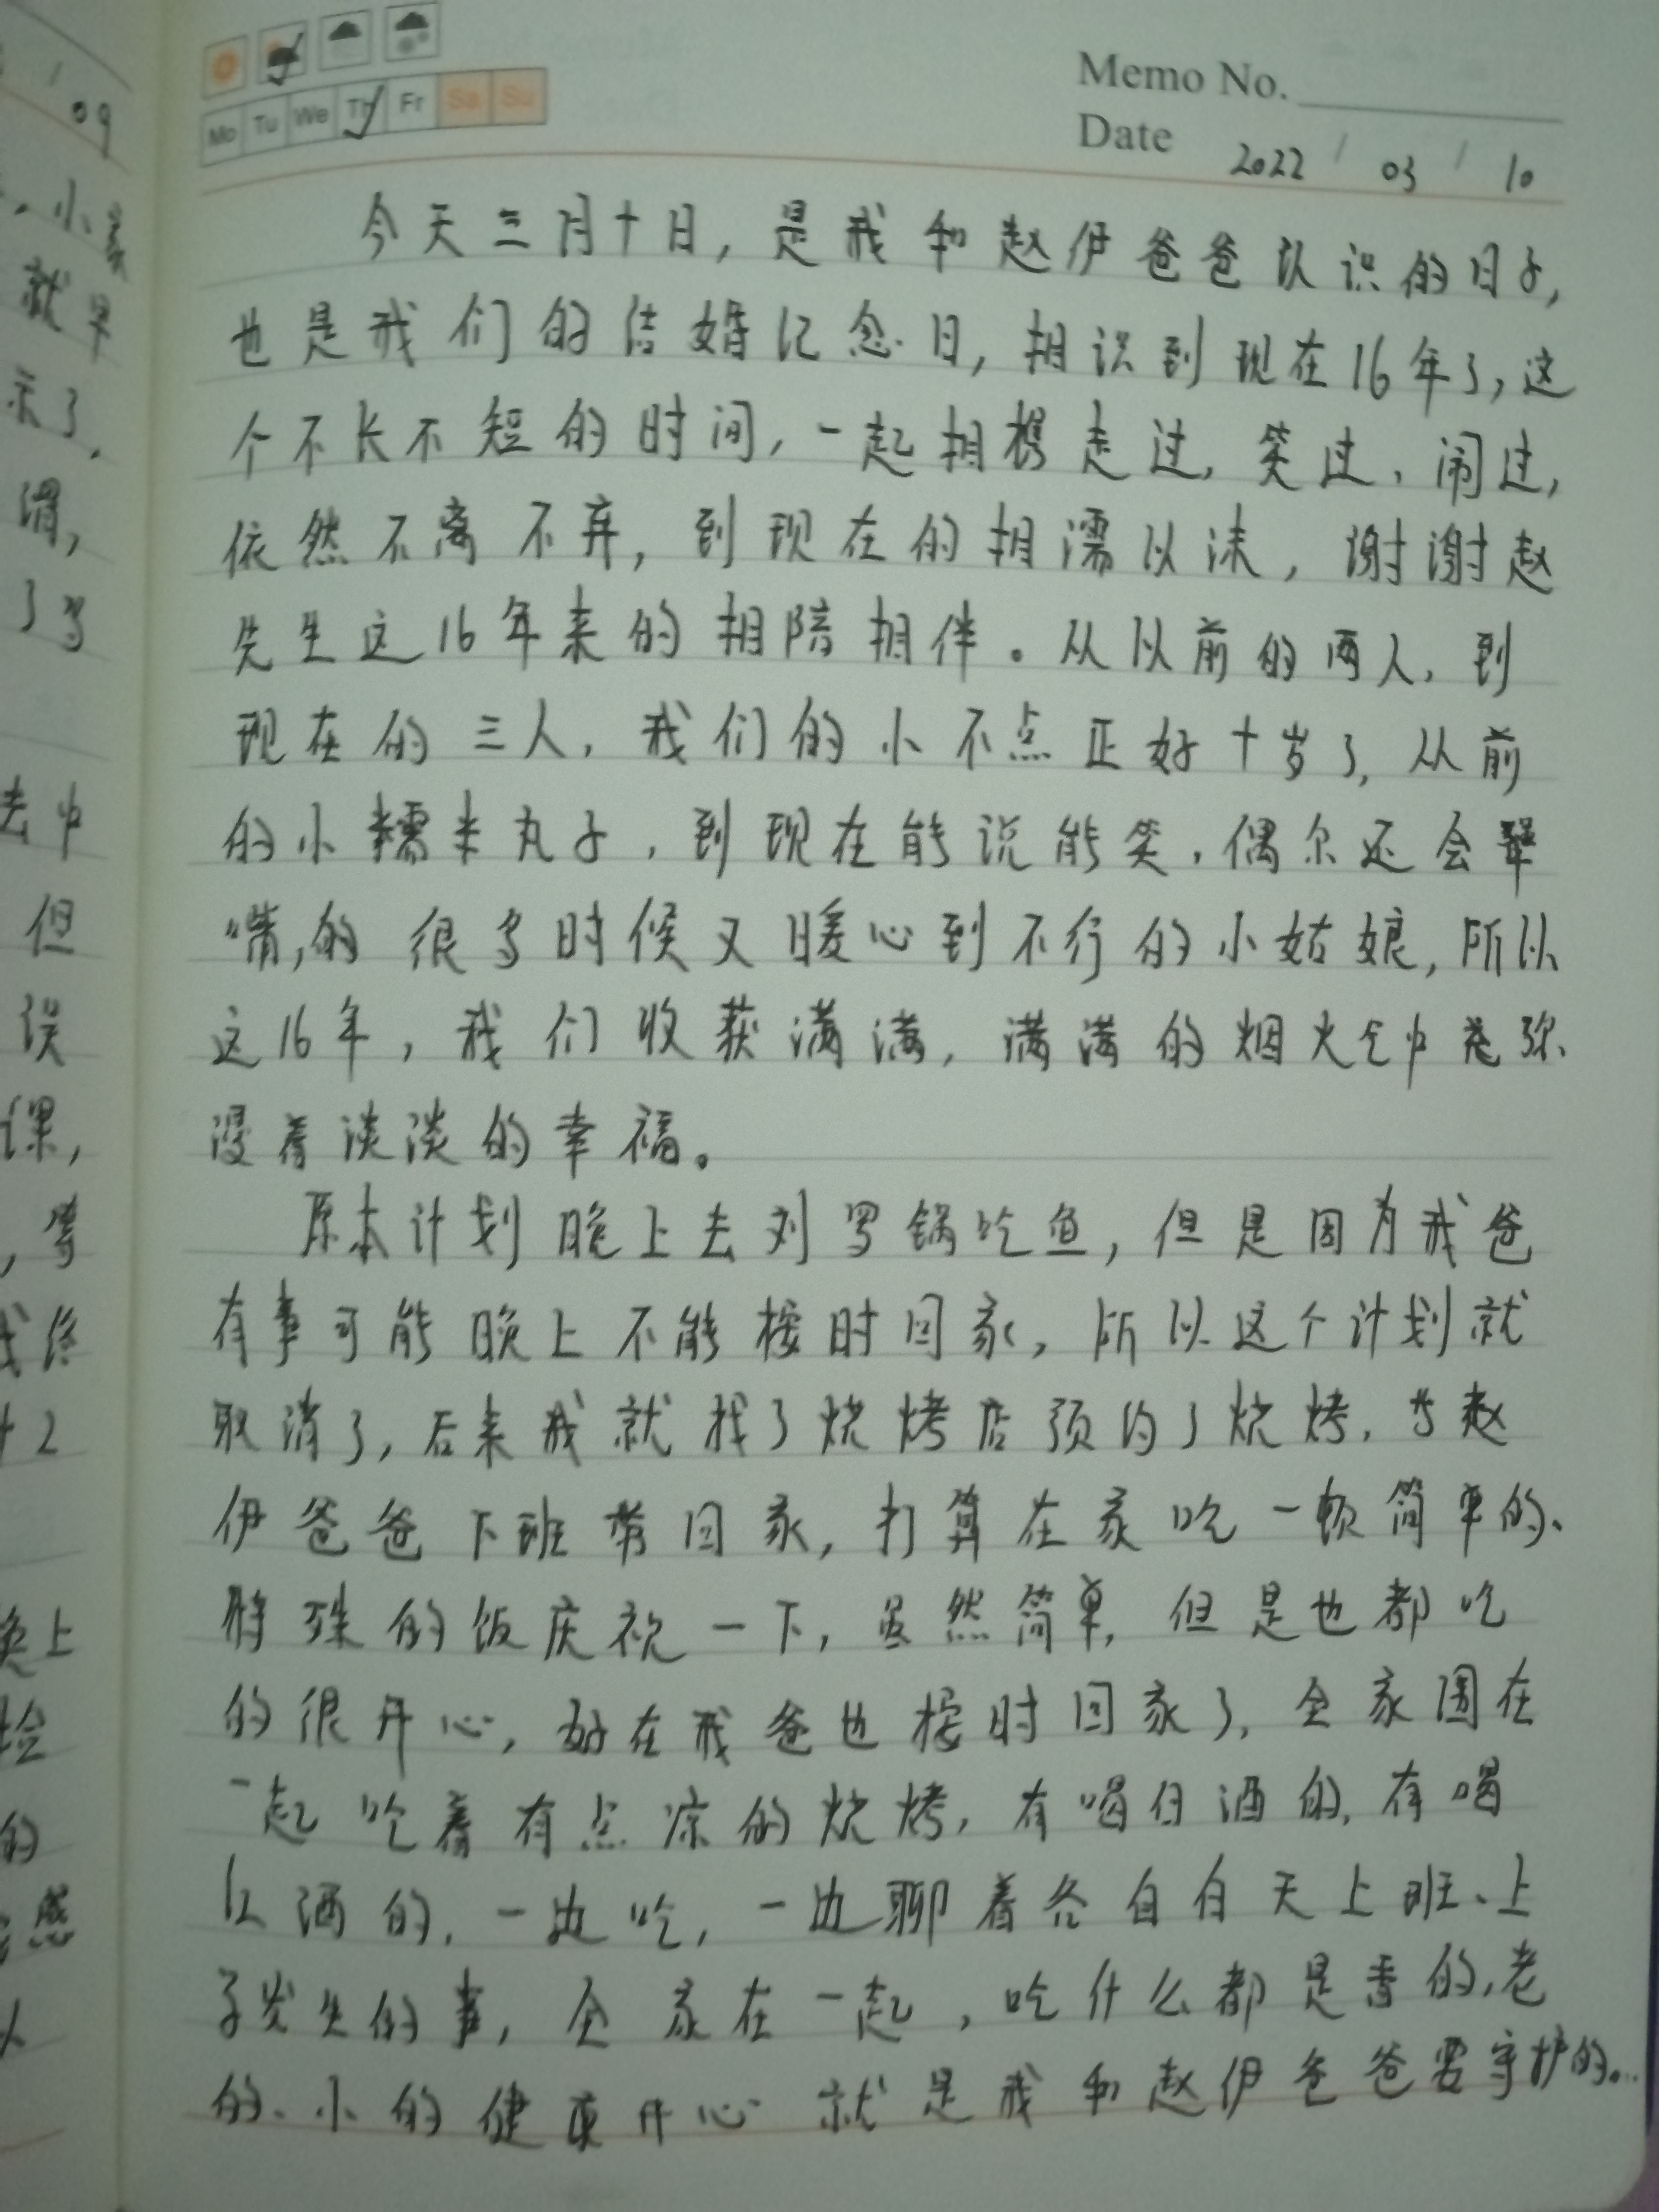 09
小家
就早
示了,
谓,
了多
去中
但
误
课,
上
的
感
Mo Tu We Th Fr Sa Su
Memo No.
Date 2022 / 03 / 10
今天三月十日,是我和赵伊爸爸认识的日子,
也是我们的结婚记念日,相识到现在16年了,这
个不长不短的时间,一起相携走过,笑过、闹过,
依然不离不弃,到现在的相濡以沫,谢谢赵
先生这16年来的相陪相伴。从以前的两人,到
现在的三人,我们的小不点正好十岁了,从前
的小糯米丸子,到现在能说能笑,偶尔还会犟
嘴,的很多时候又暖心到不行的小姑娘,所以
这16年,我们收获满满,满满的烟火气中弥
漫着淡淡的幸福。
原本计划晚上去刘罗锅吃鱼,但是因为我爸
有事可能晚上不能按时回家,所以这个计划就
取消了,后来我就找了烧烤店预约了烧烤,当赵
伊爸爸下班带回家,打算在家吃一顿简单的、
特殊的饭庆祝一下,虽然简单,但是也都吃
的很开心,好在我爸也按时回家了,全家围在
一起吃着有点凉的烧烤,有喝白酒的,有喝
红酒的,一边吃,一边聊着各自白天上班、上
学发生的事,全家在一起,吃什么都是香的,老
的、小的健康开心就是我和赵伊爸爸要守护的。..